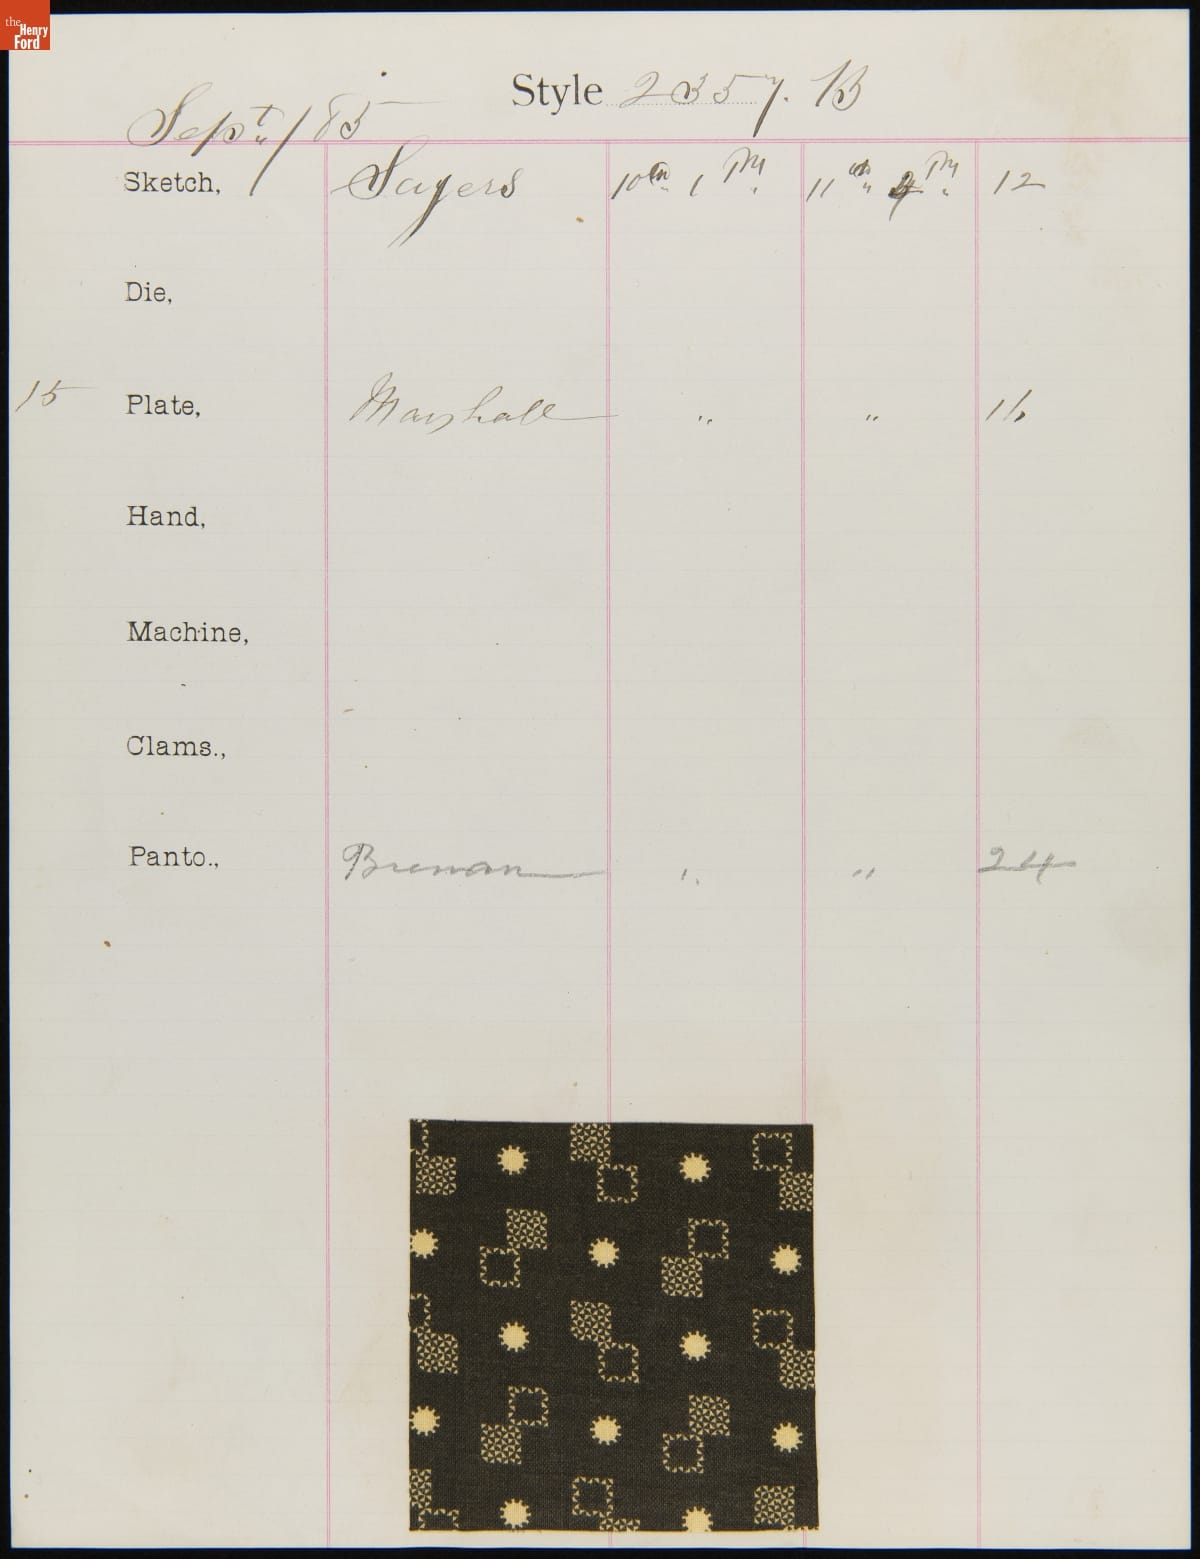 the
Henry
Ford
Style 2357. B
Sept. / 85
Sketch, Sayers 10 1 M 11 4 M 12
Die,
15 Plate, Marshall " " 16
Hand,
Machine,
Clams.,
Panto., Brennan " " 24